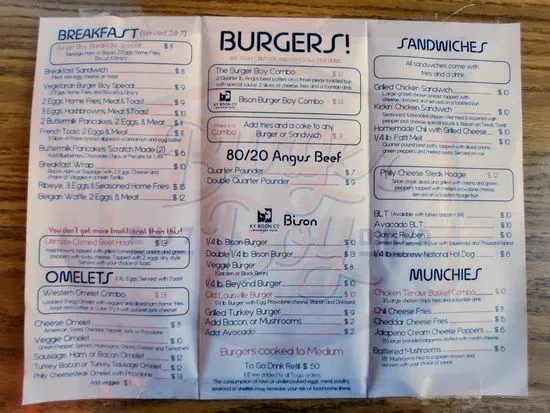 BREAKFAST (Served 24-7)
Burger Boy Breakfast Special $ 11
Sausage, Ham or Bacon, 2 Eggs, Home Fries,
Biscuit & Gravy
Breakfast Sandwich $ 8
Meat, one egg, cheese on toast
Vegetarian Burger Boy Special $ 9
2 Eggs, Home Fries, and Biscuits & Gravy
2 Eggs Home Fries, Meat & Toast $ 9
3 Eggs, Hashbrowns, Meat & Toast $ 10
2 Buttermilk Pancakes, 2 Eggs, & Meat $ 8
French Toast, 2 Eggs & Meat $ 11
3 Slices of Texas bread dipped in a cinnamon and egg batter
Buttermilk Pancakes Scratch Made (2) $ 6
Add Blueberries, Chocolate Chips or Pecans for 1.99
Breakfast Wrap $ 10
Bacon, Ham, or Sausage with 2 Eggs, Cheese
and choice of Veggies in a fresh Tortilla
Ribeye, 3 Eggs & Seasoned Home Fries $ 15
Belgian Waffle, 2 Eggs & Meat $ 12
You don't get more traditional than this!
Ultimate Corned Beef Hash $ 13
Hashbrowns topped with grilled corned beef, onions and green
peppers with swiss cheese. Topped with 2 eggs any style.
Served with your choice of toast
OMELETS 3 XL Eggs Served with Toast
Western Omelet Combo $ 13
Loaded 3 egg Omelet with veggies and diced ham, home fries,
toast and Coffee or Coke. Try it with pepper jack cheese!
Cheese Omelet $ 8
American, Swiss, Cheddar, Pepper Jack, or Provolone
Veggie Omelet $ 10
Green Pepper, Spinach, Mushrooms, Onions, Cheese and Tomatoes
Sausage, Ham, or Bacon Omelet $ 12
Turkey Bacon or Turkey Sausage Omelet $ 12
Philly Cheesesteak Omelet with Provolone $ 13
Add veggies $ 1
BURGERS!
WE TOAST BUTTER AND MAYO ALL OUR BUNS
The Burger Boy Combo $ 12
2 Quarter lb. Angus beef patties on a three-piece toasted bun
with special sauce, 2 slices of cheese, fries and a fountain drink
KY BISON CO.
Bison Burger Boy Combo $ 14
Make it a
Combo
Add fries and a coke to any
Burger or Sandwich $ 3
80/20 Angus Beef
Quarter Pounder $ 7
Double Quarter Pounder $ 9
KY BISON CO.
Bison
1/4 lb. Bison Burger $ 10
Double 1/4 lb. Bison Burger $ 13
Veggie Burger $ 8
(Garden or Black Bean)
1/4 lb. Beyond Burger $ 10
Old Louisville Burger $ 10
1/4 lb. Burger with Egg, Provolone cheese, Bacon and Dressed
Grilled Turkey Burger $ 9
Add Bacon, or Mushrooms $ 2
Add Avocado $ 2
Burgers cooked to Medium
To Go Drink Refill $ .50
10¢ fee added to all Togo orders.
The consumption of raw or undercooked eggs, meat, poultry,
seafood or shellfish may increase your risk of food borne illness.
SANDWICHES
All sandwiches come with
fries and a drink.
Grilled Chicken Sandwich $ 10
Large grilled chicken breast, topped with
cheese, dressed and served on a toasted bun
Kickin' Chicken Sandwich $ 10
Homemade Chili with Grilled Cheese $ 10
1/4 lb. Patti Melt $ 10
Quarter pound beef patty, topped with diced onions,
green peppers and melted swiss. Served on rye
Philly Cheese Steak Hoagie $ 12
Sirloin steak sliced and grilled with onions and green
peppers, topped with melted provolone cheese,
served on a hoagie bun
BLT (Available with turkey bacon +.99) $ 10
Avocado BLT $ 10
Classic Reuben $ 10
Corned Beef, served on Rye with Sauerkraut and Thousand Island
1/4 lb. Hebrew National Hot Dog $ 6
MUNCHIES
Chicken Tender Basket Combo $ 10
3 Large chicken strips, fries and a fountain drink
Chili Cheese Fries $ 8
Cheddar Cheese Fries $ 6
Jalapeno Cream Cheese Poppers $ 6
(6) large breaded jalapenos stuffed with cream cheese
Battered Mushrooms $ 6
(8) Mushrooms fried to a golden brown and
served with your choice of sauce